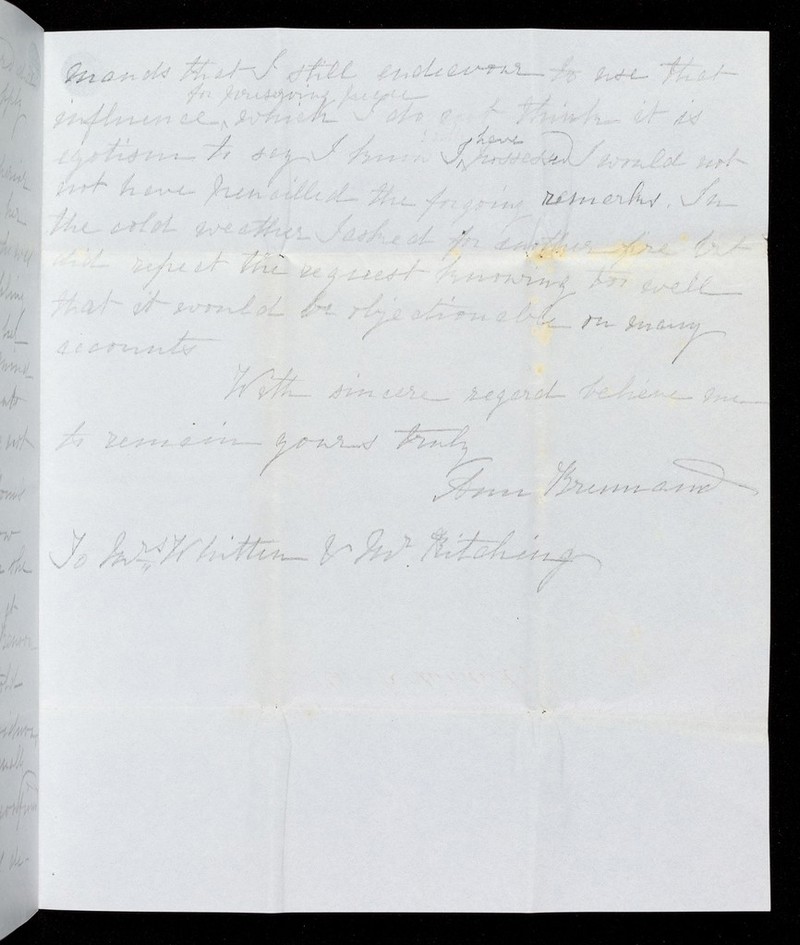 mands that I still endeavour to use that
for preserving peace
influence, which I do not think it is
have
egotism to say I know I possessed I would not
not have pencilled the forgoing remarks. In
the cold weather I asked for another fire but
did repeat the request knowing too well
that it would be objectionable on many
accounts
With sincere regard believe me
to remain yours truly
Ann Brennand
To Mrs Whitten & Mr. Kitching